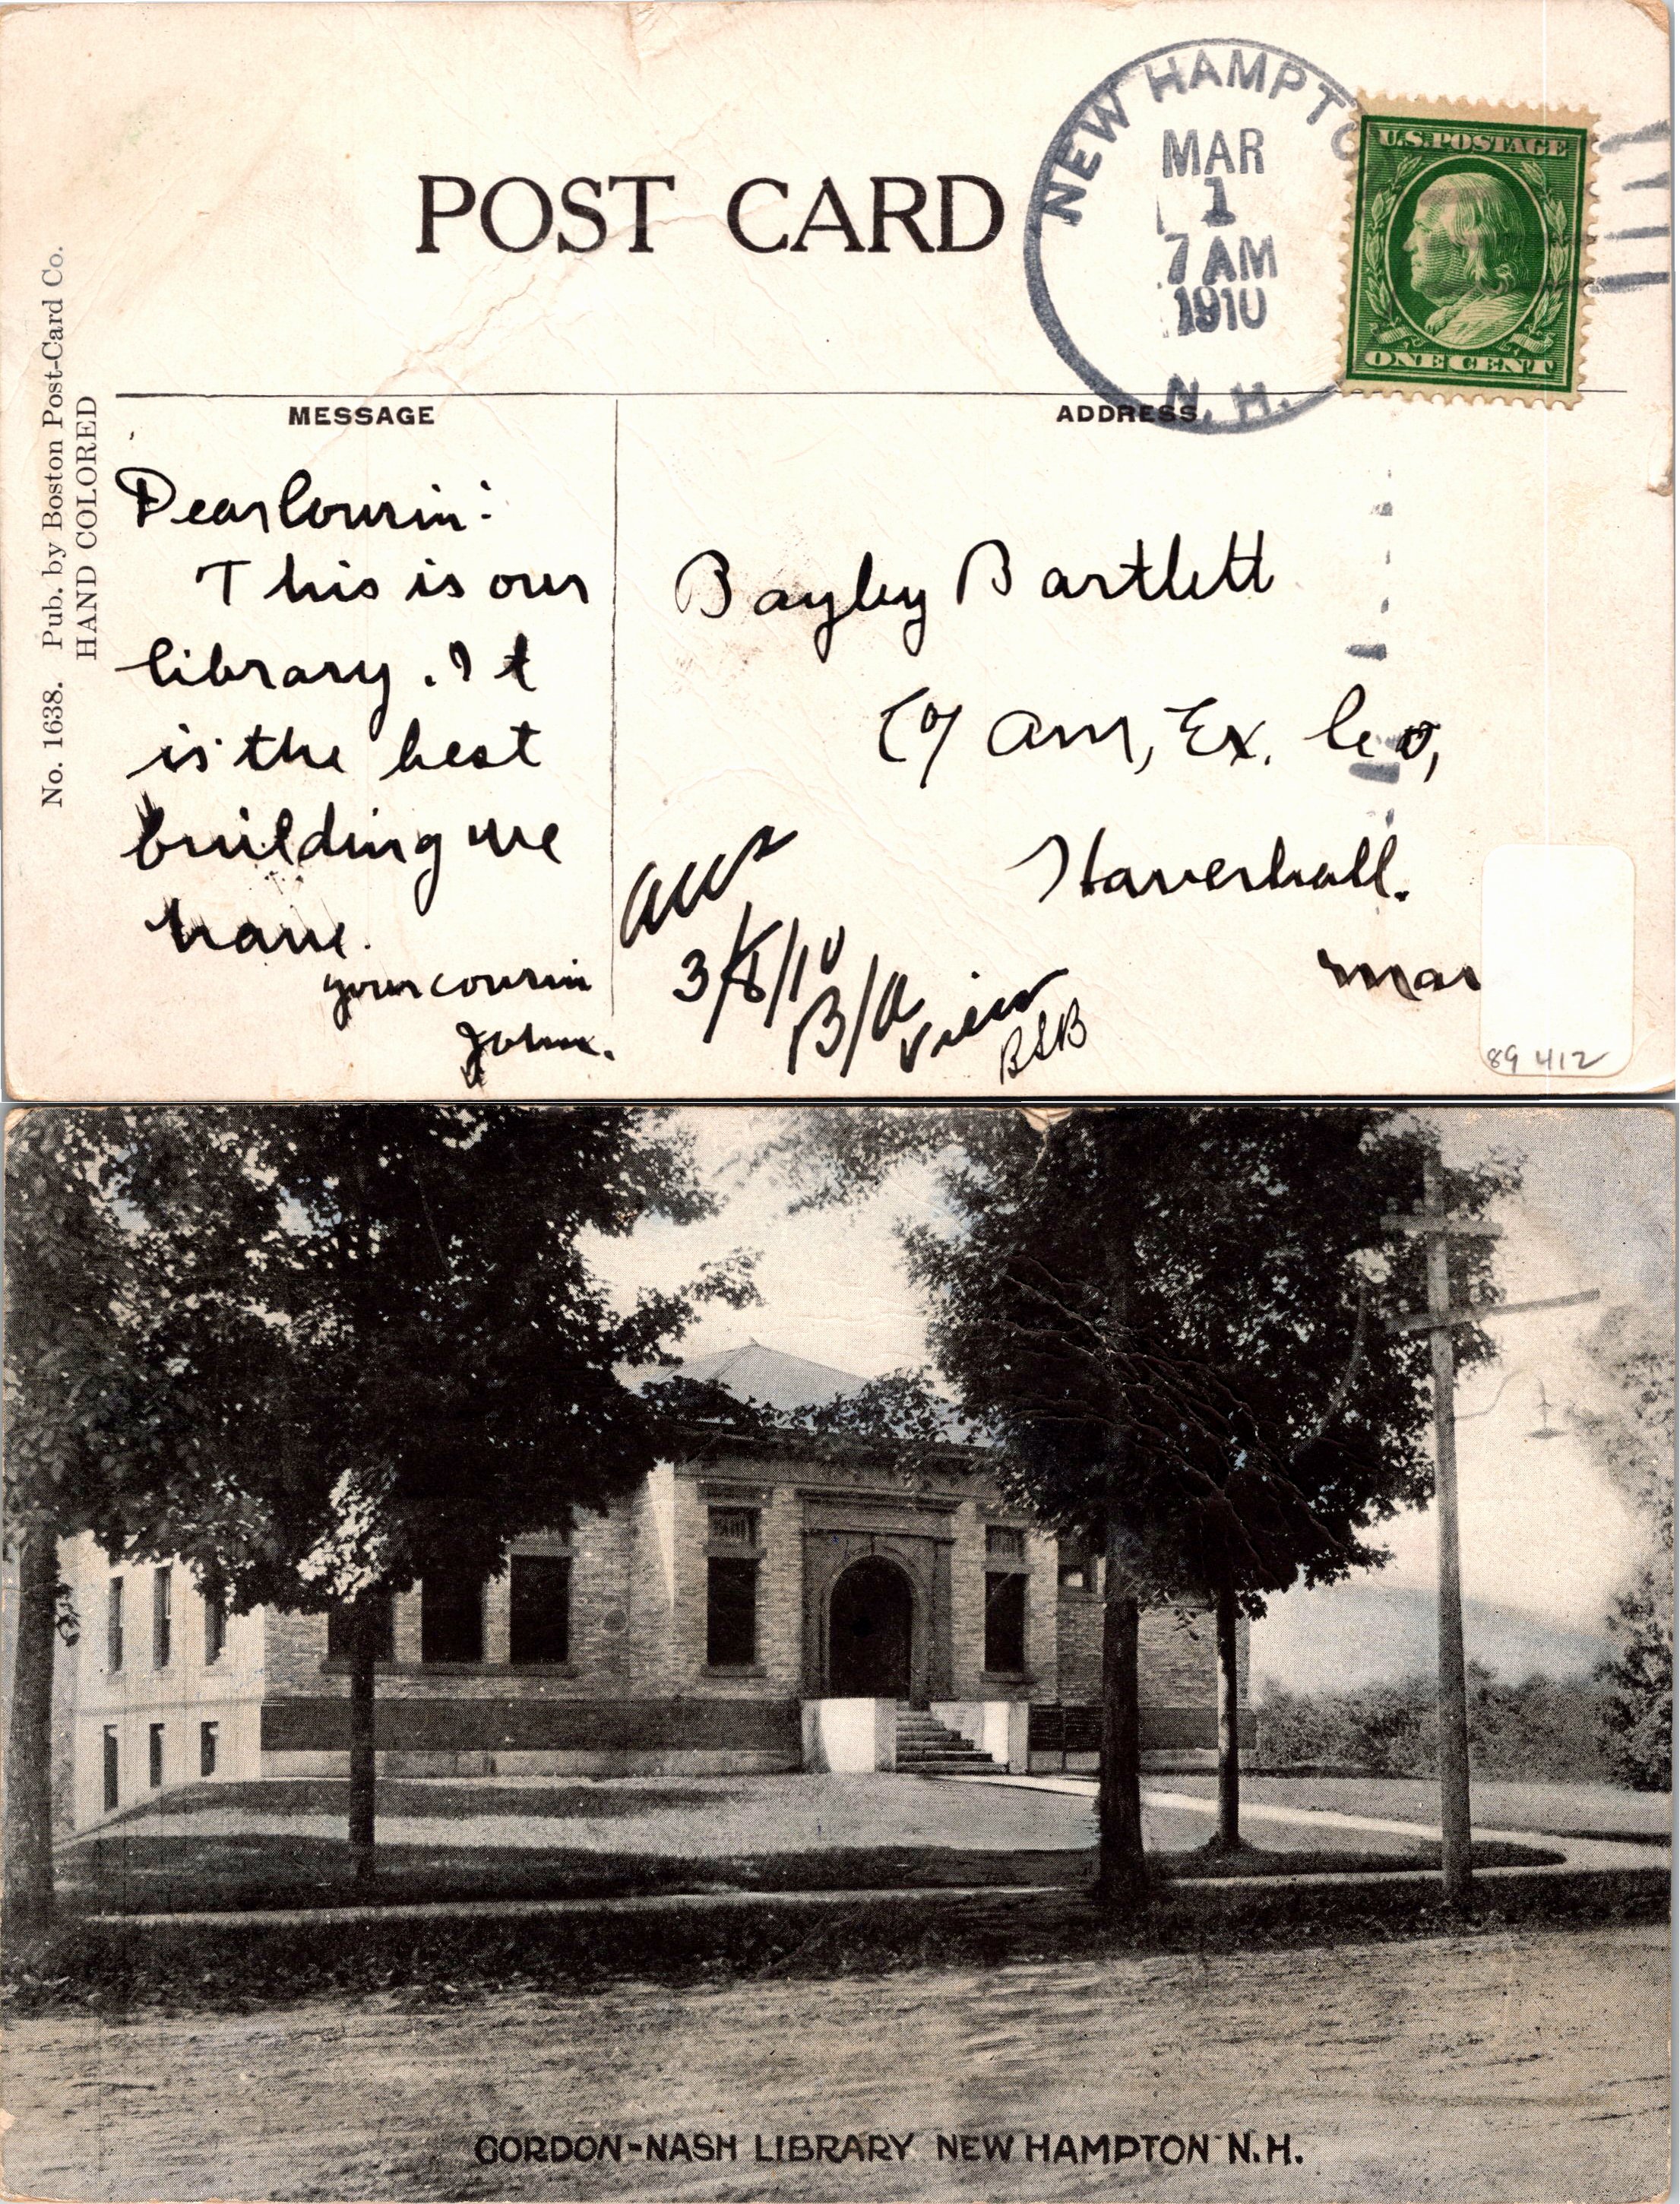 POST CARD
NEW HAMPTO
MAR
1
7 AM
1910
N. H.
U.S. POSTAGE
ONE CENT
No. 1638. Pub. by Boston Post-Card Co.
HAND COLORED
MESSAGE
ADDRESS
Dear Cousin:
This is our
library. It
is the best
building we
have.
your cousin
John.
Bayley Bartlett
c/o Am, Ex. Co,
Haverhall.
Mas
Ans
3/8/10
B/A
View
BSB
89 412
GORDON-NASH LIBRARY NEW HAMPTON N.H.